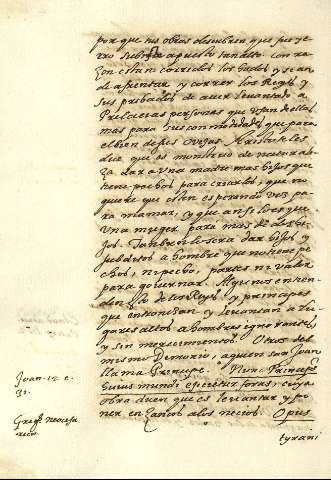 porque sus obras descubren que fue yer
ro subirse a puesto tan alto con ra
zon estan corridos los hados y se an
de afrentar y correr los Reyes y
sus pribados de aver levantado a
Prelacias personas que usan dellas
mas para sus comodidades que para
el bien de sus ovejas Aristoteles
dice que es monstruo de naturale
za dar a una madre mas hijos que
tiene pechos para criarlos, que no
quiere que esten esperando vez pa
ra mamar,
una muger para mas de dos hi
jos. Tambien lo sera dar hijos y
subditos a hombre que no tiene pe
chos, ni pecho, partes ni valor
para governar. Algunos entien
den de los Reyes y principes
que entronizan y levantan a lu
gares altos a hombres ignorantes,
y sin merecimientos. Otros del
mismo Demonio, a quien san Joan
llama Principe. Nunc Princeps
huius mundi eiicietur foras, cuya
obra dicen que es levantar y po
ner en alto a los necios. Opus
tyrani
Joan. 12 c.
31.
Greg. neocesa
rien.